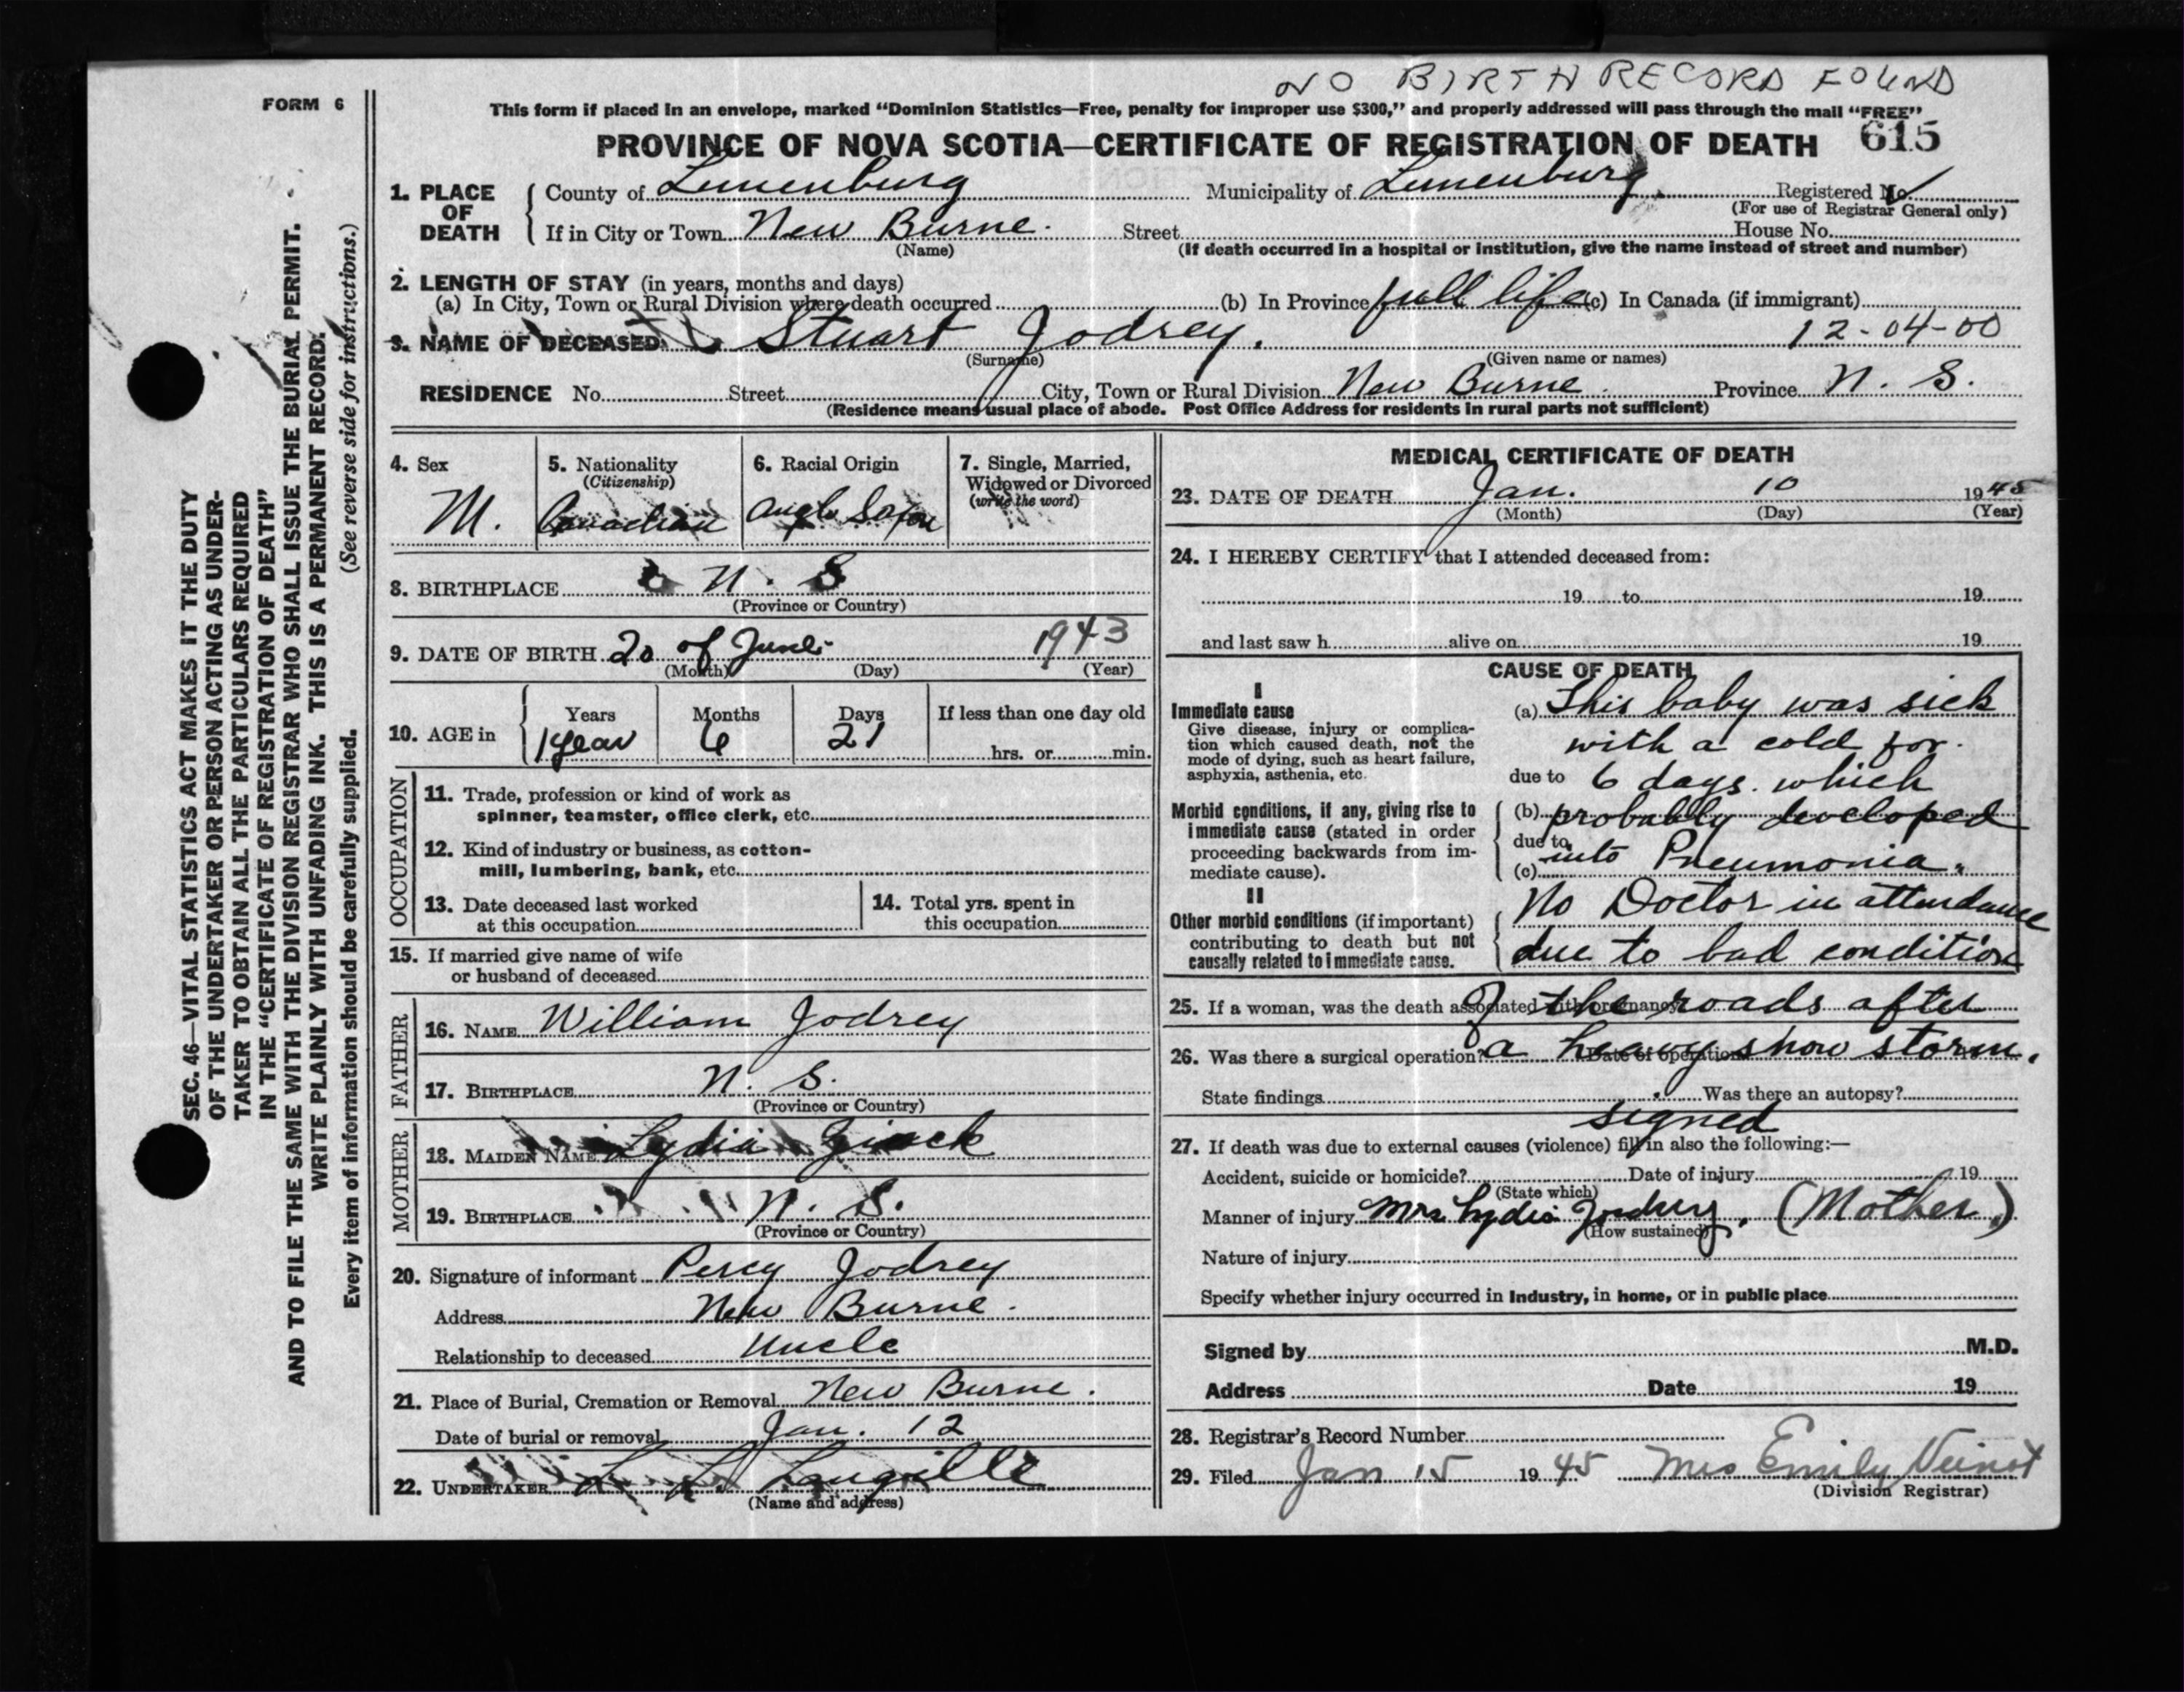 NO BIRTH RECORD FOUND
FORM 6
This form if placed in an envelope, marked “Dominion Statistics—Free, penalty for improper use $300,” and properly addressed will pass through the mail “FREE”
PROVINCE OF NOVA SCOTIA—CERTIFICATE OF REGISTRATION OF DEATH 615
1. PLACE OF DEATH County of Lunenburg Municipality of Lunenburg Registered No.
(For use of Registrar General only)
If in City or Town New Burne. Street House No.
(Name) (If death occurred in a hospital or institution, give the name instead of street and number)
2. LENGTH OF STAY (in years, months and days)
(a) In City, Town or Rural Division where death occurred (b) In Province full life (c) In Canada (if immigrant)
3. NAME OF DECEASED Stuart Jodrey. 12-04-00
(Surname) (Given name or names)
RESIDENCE No. Street City, Town or Rural Division New Burne. Province N. S.
(Residence means usual place of abode. Post Office Address for residents in rural parts not sufficient)
SEC. 46—VITAL STATISTICS ACT MAKES IT THE DUTY
OF THE UNDERTAKER OR PERSON ACTING AS UNDER-
TAKER TO OBTAIN ALL THE PARTICULARS REQUIRED
IN THE “CERTIFICATE OF REGISTRATION OF DEATH”
AND TO FILE THE SAME WITH THE DIVISION REGISTRAR WHO SHALL ISSUE THE BURIAL PERMIT.
WRITE PLAINLY WITH UNFADING INK. THIS IS A PERMANENT RECORD.
Every item of information should be carefully supplied. (See reverse side for instructions.)
4. Sex
M.
5. Nationality
(Citizenship)
Canadian
6. Racial Origin
Anglo Saxon
7. Single, Married,
Widowed or Divorced
(write the word)
8. BIRTHPLACE N. S
(Province or Country)
9. DATE OF BIRTH 20 of June 1943
(Month) (Day) (Year)
10. AGE in Years Months Days If less than one day old
1 year 6 21 hrs. or min.
OCCUPATION
11. Trade, profession or kind of work as
spinner, teamster, office clerk, etc.
12. Kind of industry or business, as cotton-
mill, lumbering, bank, etc.
13. Date deceased last worked
at this occupation
14. Total yrs. spent in
this occupation
15. If married give name of wife
or husband of deceased
FATHER
16. NAME William Jodrey
17. BIRTHPLACE N. S.
(Province or Country)
MOTHER
18. MAIDEN NAME Lydia
19. BIRTHPLACE N. S.
(Province or Country)
20. Signature of informant Percy Jodrey
Address New Burne.
Relationship to deceased Uncle
21. Place of Burial, Cremation or Removal New Burne.
Date of burial or removal Jan. 12
22. UNDERTAKER L. L. Langille
(Name and address)
MEDICAL CERTIFICATE OF DEATH
23. DATE OF DEATH Jan. 10 1945
(Month) (Day) (Year)
24. I HEREBY CERTIFY that I attended deceased from:
19 to 19
and last saw h alive on 19
CAUSE OF DEATH
I
Immediate cause
Give disease, injury or complica-
tion which caused death, not the
mode of dying, such as heart failure,
asphyxia, asthenia, etc.
Morbid conditions, if any, giving rise to
immediate cause (stated in order
proceeding backwards from im-
mediate cause).
II
Other morbid conditions (if important)
contributing to death but not
causally related to immediate cause.
(a) This baby was sick
with a cold for
due to 6 days. which
(b) probably developed
due to
(c) into Pneumonia.
No Doctor in attendance
due to bad condition
25. If a woman, was the death associated with pregnancy of the roads after
26. Was there a surgical operation? Date of operation a heavy snow storm.
State findings Was there an autopsy?
signed
27. If death was due to external causes (violence) fill in also the following:—
Accident, suicide or homicide? Date of injury 19
(State which)
Manner of injury Mrs Lydia Jodrey, (Mother.)
(How sustained)
Nature of injury
Specify whether injury occurred in Industry, in home, or in public place
Signed by M.D.
Address Date 19
28. Registrar's Record Number
29. Filed Jan 15 1945 Mrs Emily Veinot
(Division Registrar)